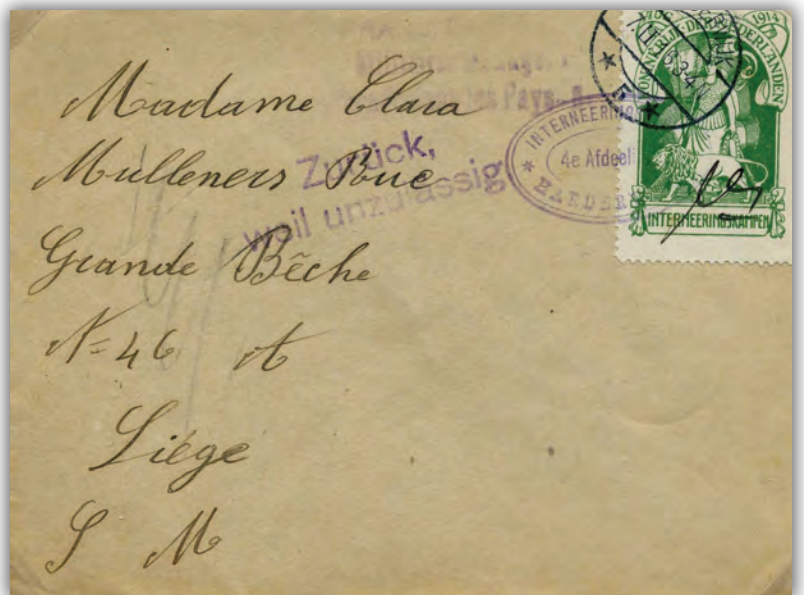 Madame Clara
Mulleners Rue
Grande Bêche
N=46 A
Liége
S M
Zurück,
weil unzulässig
les Pays-
INTERNEERING
4e Afdeeli
HARDER
WIJK
1914
DER NEDERLANDEN
INTERNEERINGSKAMPEN